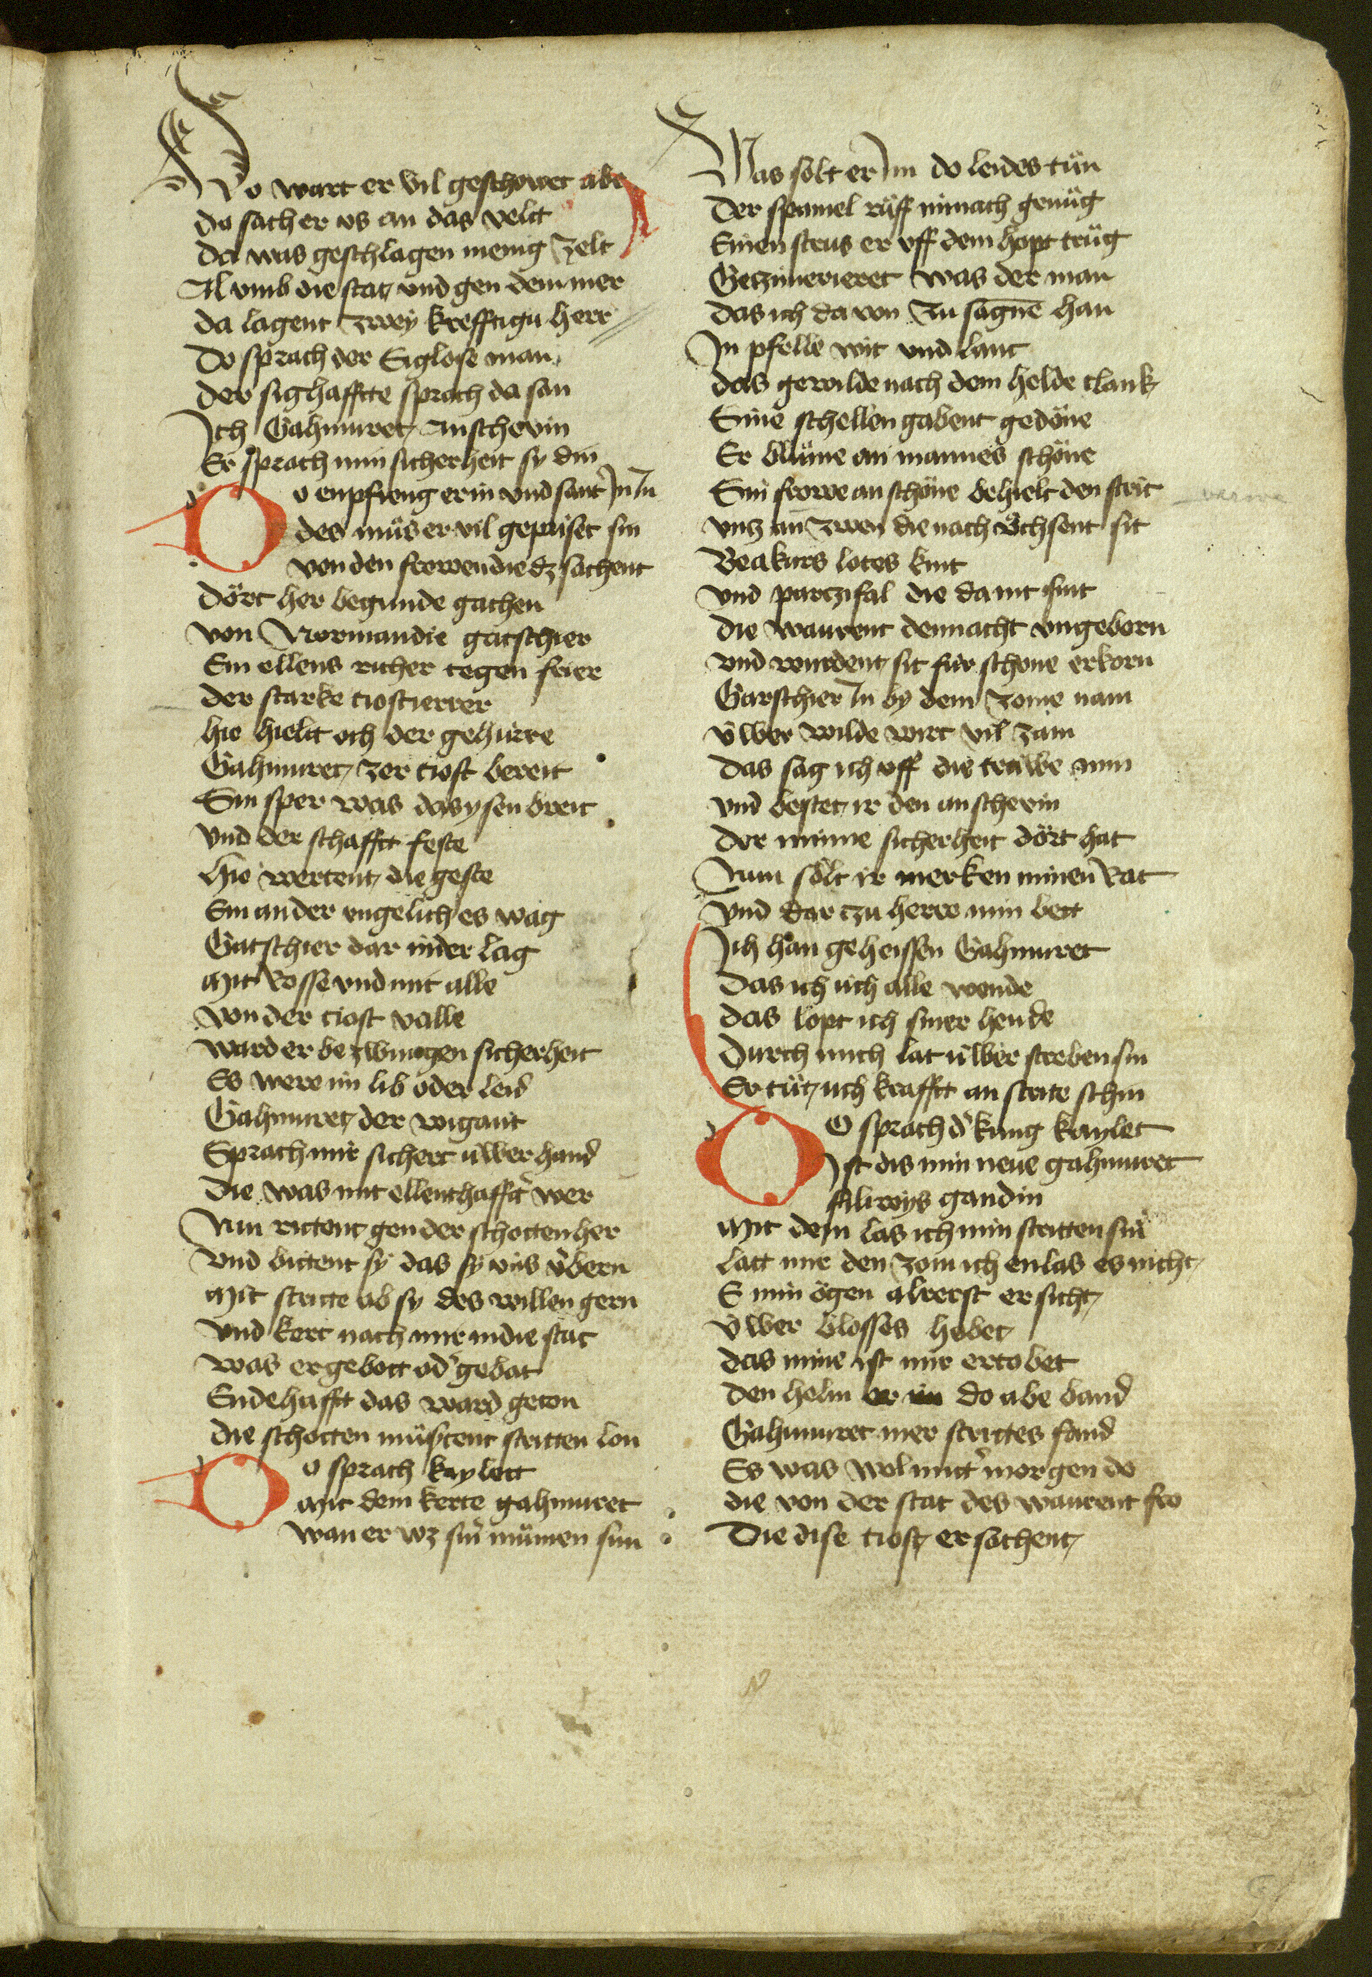 Do wart er vil geschowet abe
do sach er vs an das velt
da was geschlagen menig zelt
Al vmb die stat vnd gen dem mer
da lagent zwey krefftigu herr
Do sprach der Siglose man
der sighafftte sprach da san
Ich Gahmuret Anschevin
Er sprach min sicherheit sy din
Do enpfieng er in vnd sant in in
des müs er vil gepriset sin
von den frowen die dz sachent
dört her begunde gachen
von Normandie gatschier
Sin ellens richer tegen feier
der starke tiostierrer
hie hielt och der gehürre
Gahmuret zer tiost bereit
Sin sper was das ysen breit
vnd der schafftt feste
hie wertent die geste
Ein ander vngelich es wag
Gatschier dar nider lag
mit Rosse vnd mit alle
von der tiost valle
ward er bezwungen sicherheit
Es were im lib oder leid
Gahmuret der wigant
Sprach mir sichert üwer hand
die was mit ellenthaffter wer
Nun rittent gen der schotten her
vnd bittent sy das sy vns verbern
mit stritte ob sy des willen gern
vnd kert nach mir in die stat
was er gebott od gebat
Endehafft das ward geton
die schotten müstent stritten lon
Do sprach kaylett
mit dem kerte gahmuret
wan er wz sin mümen sun
Was solt er im do leides tün
der spaniel rüff im nach genüg
Einen strus er vff dem hopt trüg
Getzimerieret was der man
das ich da von zu sagne han
In pfelle wit vnd lant
das gewilde nach dem helde clank
Sine schellen gabent gedöne
Er blüme an mannes schöne
Sin frowe an schöne behielt den strit
vntz an zwen die nach öchsent sit
Beakurs lotes kint
vnd partzifal die da nit sint
die waurent dennacht vngeborn
vnd wurdent sit für schone erkorn
Garschier in by dem zome nam
üwer wilde wirt vil zam
das sag ich vff die truwe min
vnd bestet ir den anschevin
der mine sicherheit dört hat
Nun sölt ir merken minen Rat
vnd dar tzu herre min bett
Ich han geheissen Gahmuret
das ich üch alle wende
das lopt ich siner hende
durch mich lat üwer streben sin
Er tüt üch krafft an strite schin
Do sprach d kung kaylet
Ist dis min neue gahmuret
filiroys gandin
mit dem las ich min stritten sin
latt mir den zom ich enlas es nicht
E min ögen alrerst er sicht
üwer blosses hobet
das mine ist mir ertobet
den helm er im do abe band
Gahmuret mer strittes fand
Es was wol mitt morgen do
die von der stat des waurent fro
Die dise tiost er sachent